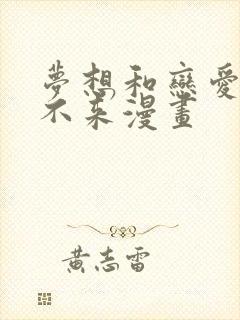 夢想和戀愛
不来漫畫
黃志雷